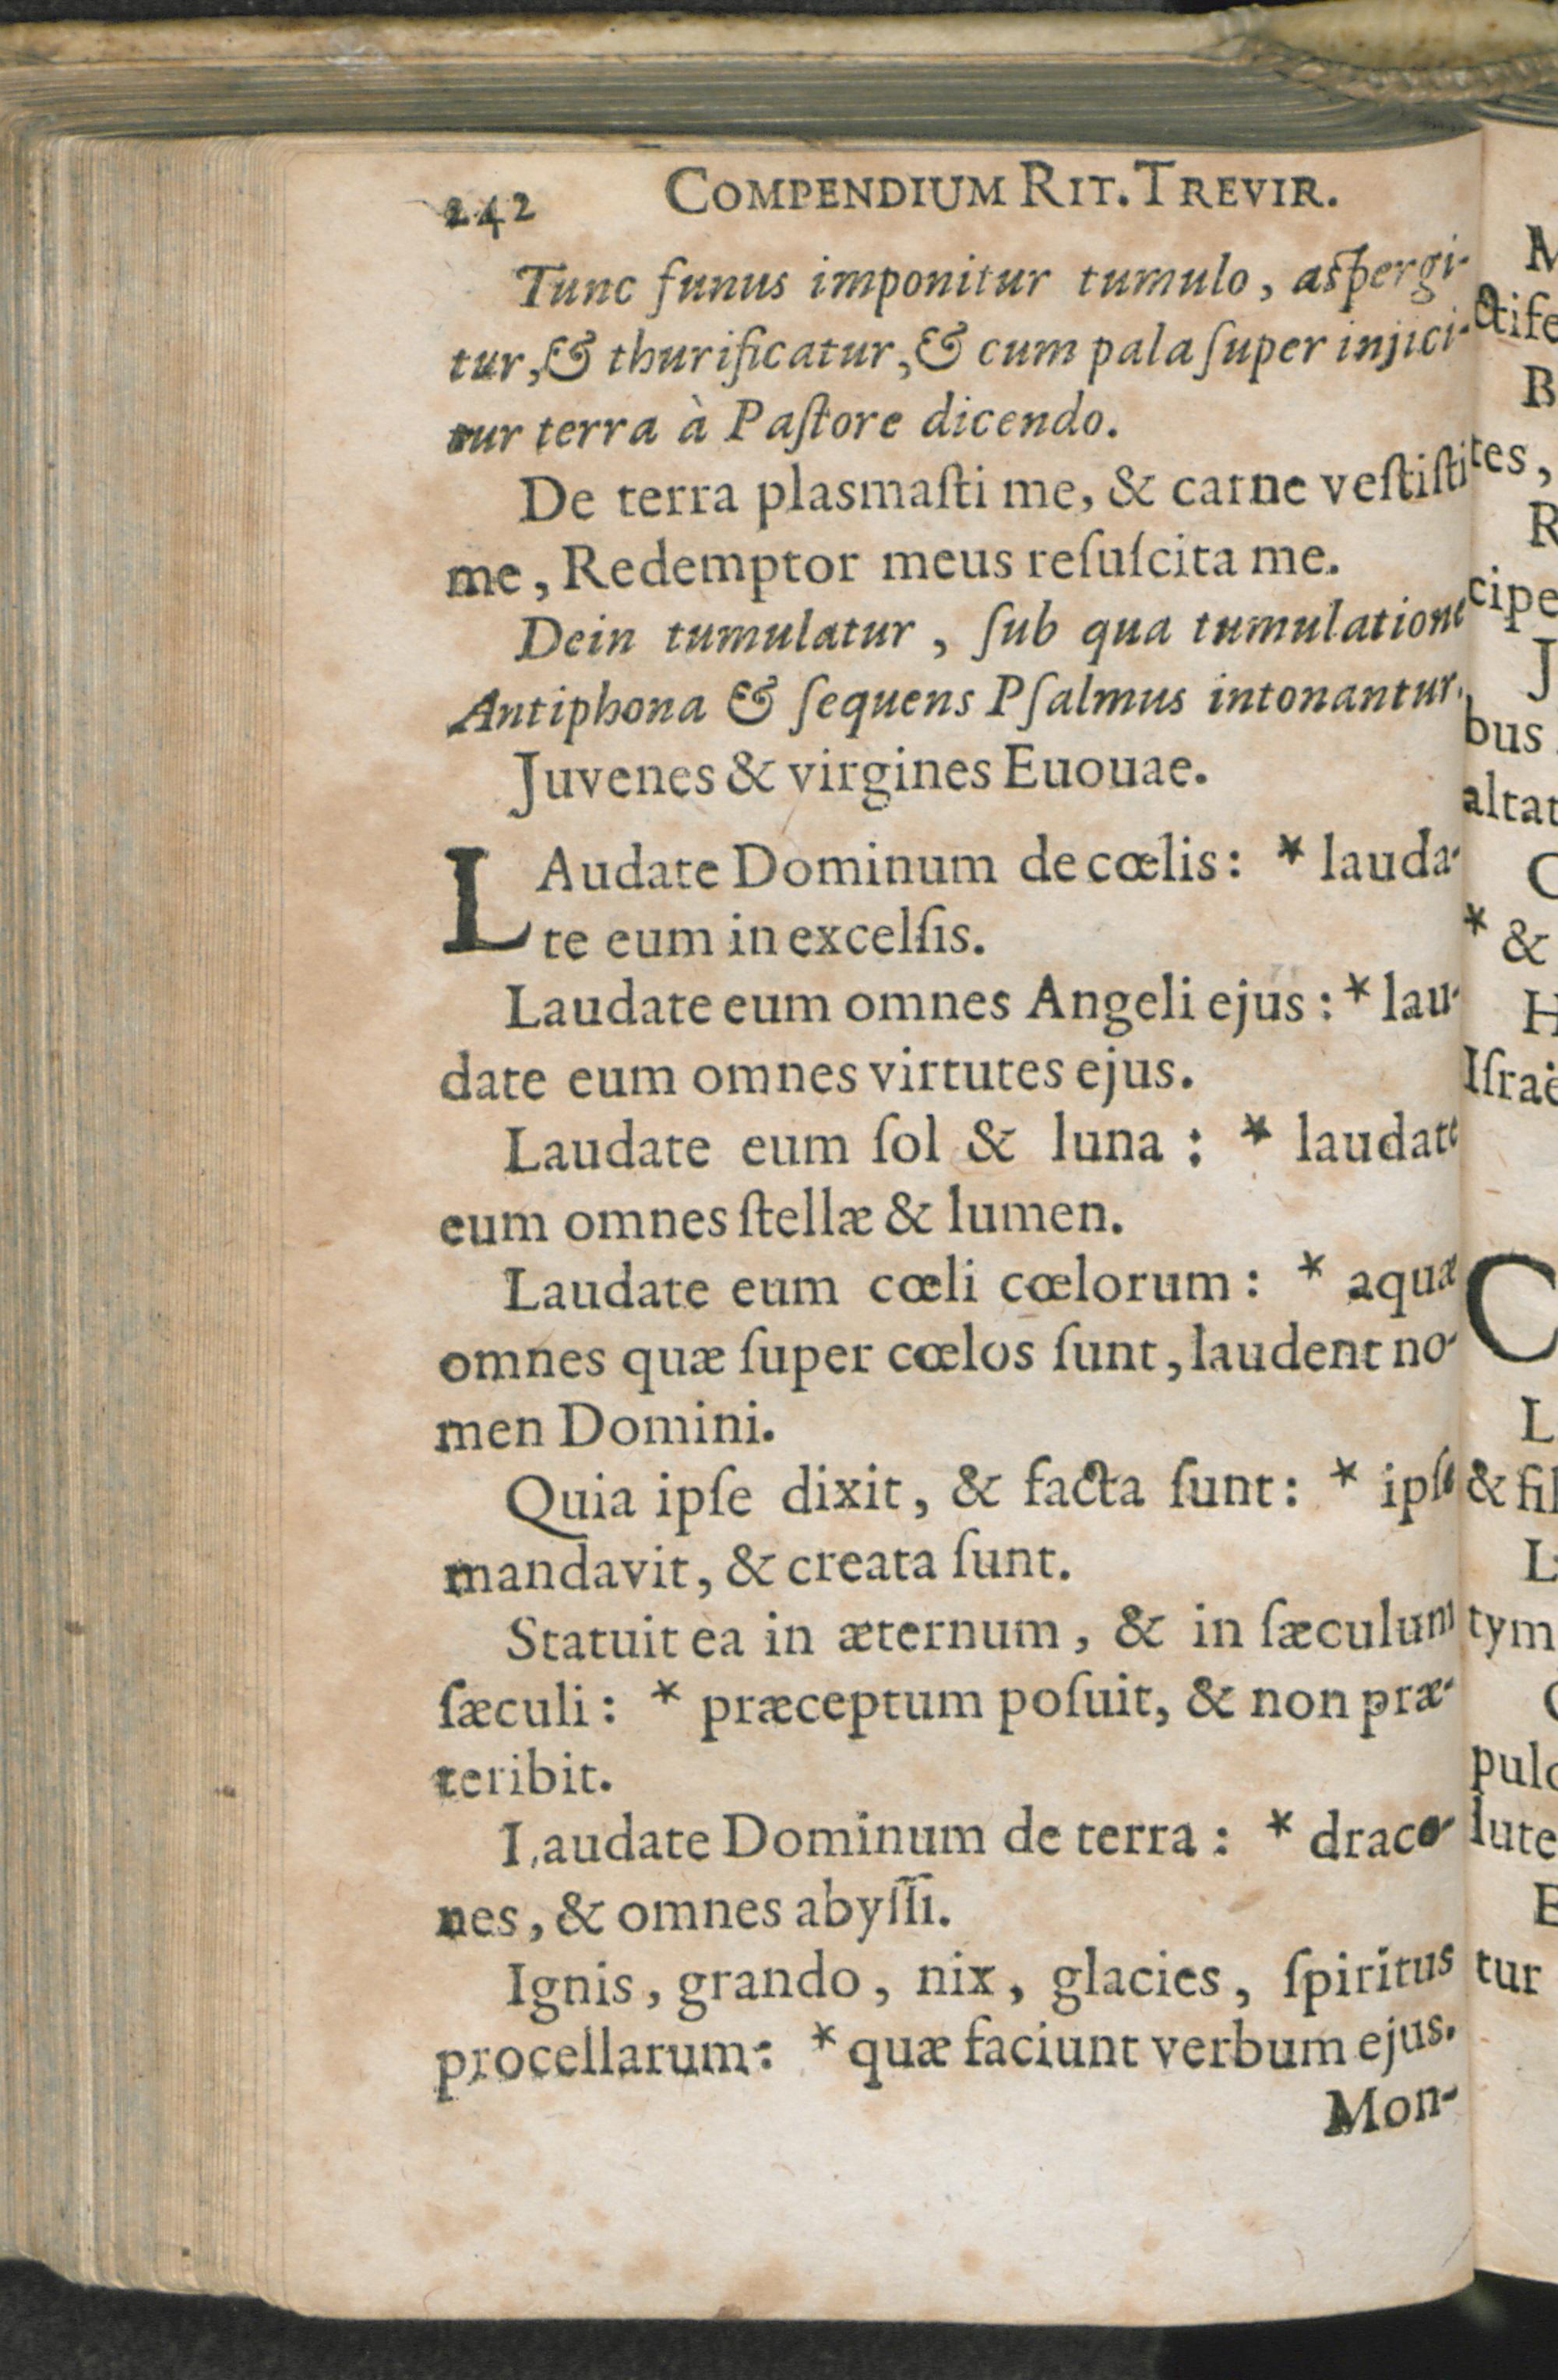 242 COMPENDIUM RIT. TREVIR.
Tunc funus imponitur tumulo, aſpergi-
tur, & thurificatur, & cum pala ſuper injici-
tur terra à Paſtore dicendo.
De terra plasmaſti me, & carne veſtiſti
me, Redemptor meus reſuſcita me.
Dein tumulatur, ſub qua tumulatione
Antiphona & ſequens Pſalmus intonantur.
Juvenes & virgines Euouae.
LAudate Dominum de cœlis: * lauda-
te eum in excelſis.
Laudate eum omnes Angeli ejus: * lau-
date eum omnes virtutes ejus.
Laudate eum ſol & luna: * laudate
eum omnes ſtellæ & lumen.
Laudate eum cœli cœlorum: * aquæ
omnes quæ ſuper cœlos ſunt, laudent no-
men Domini.
Quia ipſe dixit, & facta ſunt: * ipſe
mandavit, & creata ſunt.
Statuit ea in æternum, & in ſæculum
ſæculi: * præceptum poſuit, & non præ-
teribit.
Laudate Dominum de terra: * draco-
nes, & omnes abyſſi.
Ignis, grando, nix, glacies, ſpiritus
procellarum: * quæ faciunt verbum ejus.
Mon-
ctife
B
tes,
R
cipe
J
bus
altat
* &
H
Iſraë
C
L
& fil
L
tym
pulc
lute
E
tur